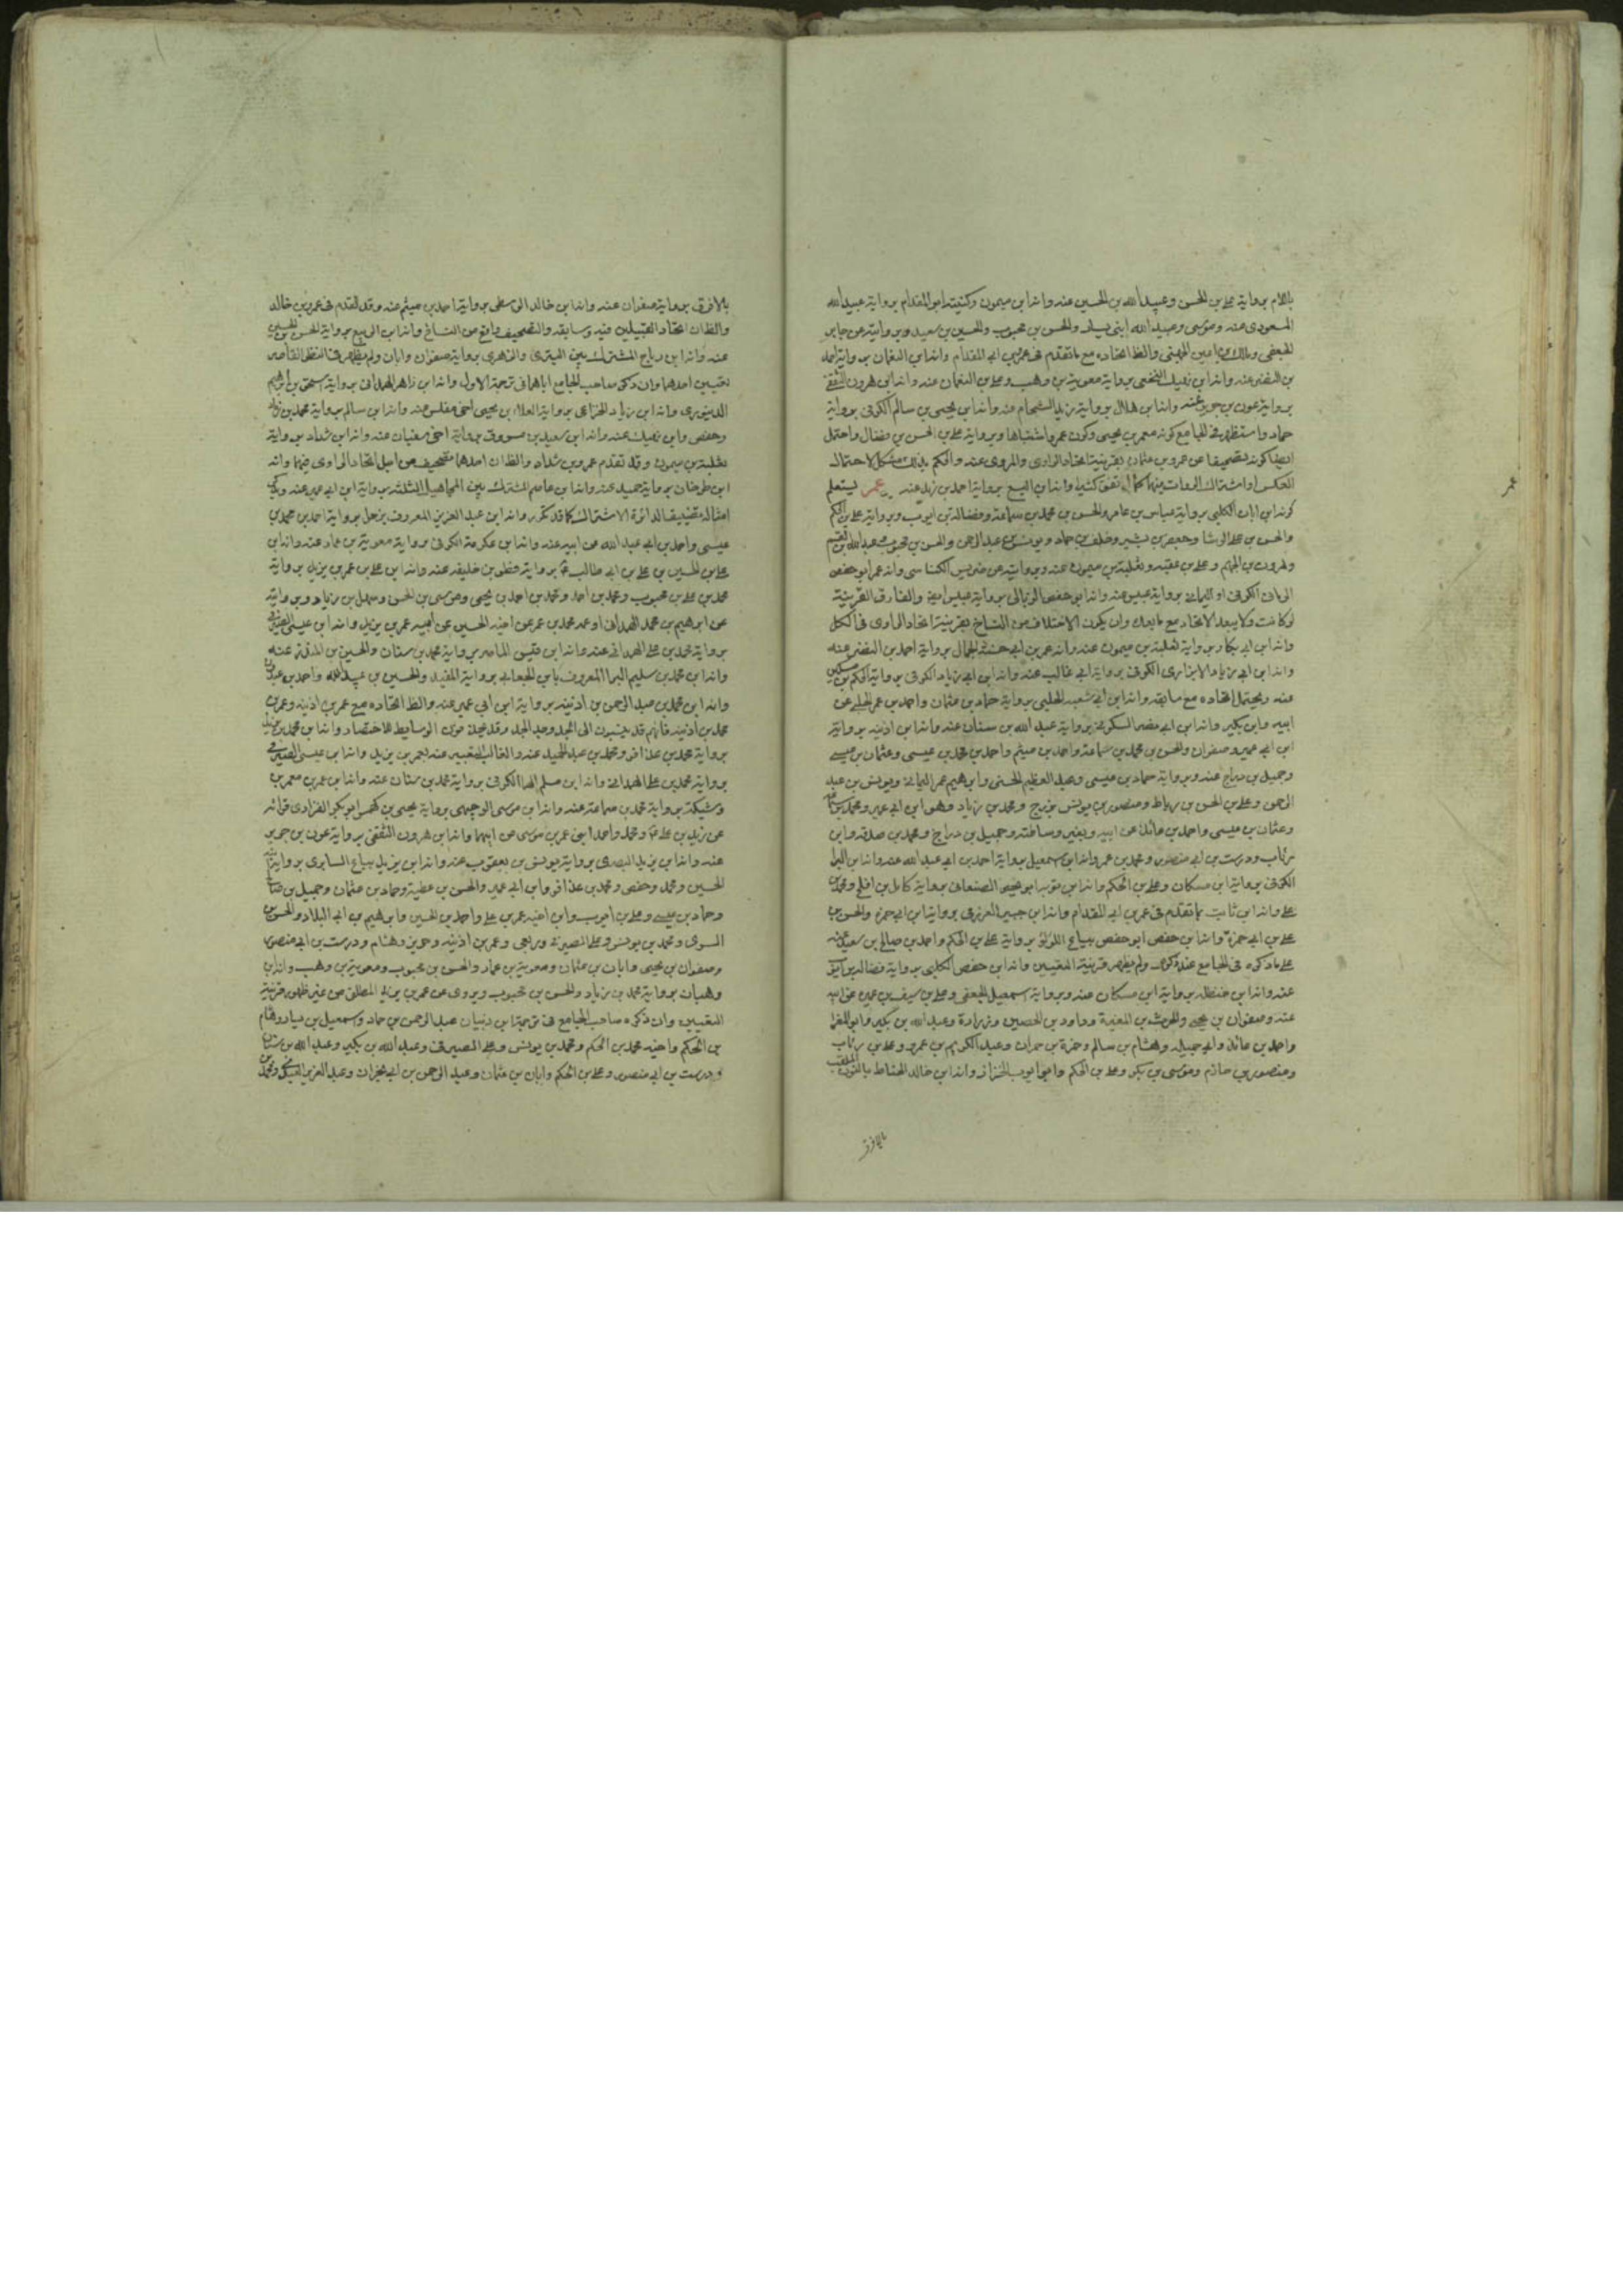 باللام برواية علي بن الحسن وعبيد الله بن الحسين عنه وانه ابن ميمون وكنيته ابو المقدام برواية عبيد الله
المسعودي عنه وموسى وعبيد الله ابني يسار والحسن بن محبوب والحسين بن سعيد وبروايته عن جابر
الجعفي ومالك بن اعين الجهني والظ اتحاده مع ما تقدم في عمر بن ابي المقدام وانه ابن النعمان برواية احمد
بن النضر عنه وانه ابن نهيك النخعي برواية معوية بن وهب وعلي بن النعمان عنه وانه ابن هرون الثقفي
برواية عون بن جرير عنه وانه ابن هلال برواية زيد الشحام عنه وانه ابن يحيى بن سالم الكوفي برواية
حماد واستظهر في الجامع كونه معمر بن يحيى وكون عمرو اشتباها وبرواية علي بن الحسن بن فضال واحتمل
ايضا كونه تصحيفا عن عمرو بن عثمان بقرينة اتحاد الراوي والمروي عنه والحكم بذلك مشكل لاحتمال
العكس او اشتراك الروات بينهما كما اتفق كثيرا وانه ابن اليسع برواية احمد بن زيد عنه عمر يستعلم
كونه ابن ابان الكلبي برواية عباس بن عامر والحسن بن محمد بن سماعة وفضالة بن ايوب وبرواية علي بن الحكم
والحسن بن علي الوشا وجعفر بن بشير وخلف بن حماد ويونس بن عبد الرحمن والحسن بن محبوب وعبد الله بن القسم
وهرون بن الجهم وعلي بن عقبه وثعلبة بن ميمون عنه وبروايته عن ضريس الكناسي وانه عمر ابو حفص
الرماني الكوفي او اليماني برواية عبيس عنه وانه ابو حفص الزبالي برواية عبيس ايضا والفارق القرينة
لو كانت ولا يبعد الاتحاد مع ما بعدك وان يكون الاختلاف من النساخ بقرينة اتحاد الراوي في الكل
وانه ابن ابي بكار برواية ثعلبة بن ميمون عنه وانه عمر بن ابي حسنة الجمال برواية احمد بن النضر عنه
وانه ابن ابي زياد الابزاري الكوفي برواية ابي غالب عنه وانه ابن ابي زياد الكوفي برواية الحكم بن مسكين
عنه ويحتمل اتحاده مع سابقه وانه ابن ابي شعبه الحلبي برواية حماد بن عثمان واحمد بن عمر الحلبي عن
ابيه وابن بكير وانه ابن ابي نصر السكوني برواية عبد الله بن سنان عنه وانه ابن اذينه برواية
ابن ابي عمير وصفوان والحسن بن محمد بن سماعة واحمد بن ميثم واحمد بن محمد بن عيسى وعثمان بن عيسى
وجميل بن دراج عنه وبرواية حماد بن عيسى وعبد العظيم الحسني وابرهيم عمر اليماني ويونس بن عبد
الرحمن وعلي بن الحسن بن رباط ومنصور بن يونس بزرج ومحمد بن زياد وهو ابن ابي عمير ومحمد بن
وعثمان بن عيسى واحمد بن عائذ عن ابيه وبغير وساطته وجميل بن دراج ومحمد بن صدقه وابن
رئاب ودرست بن ابي منصور ومحمد بن عمر وانه ابن اسمعيل برواية احمد بن ابي عبد الله عنه وانه ابن البراء
الكوفي برواية ابن مسكان وعلي بن الحكم وانه ابن توبه ابو يحيى الصنعاني برواية كامل بن افلح ومحمد بن
علي وانه ابن ثابت بما تقدم في عمر بن ابي المقدام وانه ابن جبير العزرمي برواية ابن ابي حمزه والحسن بن
علي بن ابي حمزة وانه ابن حفص ابو حفص بياع اللؤلؤ برواية علي بن الحكم واحمد بن صالح بن سعيد عنه
علي ما ذكره في الجامع عند ذكره ولم يظهر قرينة التعيين وانه ابن حفص الكلبي برواية فضالة بن ايوب
عنه وانه ابن حنظله برواية ابن مسكان عنه وبرواية اسمعيل الجعفي وعلي بن سيف بن عميره عن ابيه
عنه وصفوان بن يحيى والحرث بن المغيرة وداود بن الحصين وزرارة وعبد الله بن بكير وابو المغرا
واحمد بن عائذ وابي جميله وهشام بن سالم وحمزة بن حمران وعبد الكريم بن عمرو وعلي بن رئاب
ومنصور بن حازم وموسى بن بكر وعلي بن الحكم وابو ايوب الخزاز وانه ابن خالد الحناط الملقب بالنون
بالافرق
عمر
بالافرق برواية صفوان عنه وانه ابن خالد الواسطي برواية احمد بن ميثم عنه وقد تقدم في عمرو بن خالد
والظ ان اتحاد القبيلين فيه وسابقه والتصحيف واقع من النساخ وانه ابن الربيع برواية الحسن بن الحسين
عنه وانه ابن رباح المشترك بين القيري والزهري برواية صفوان وابان ولم يظهر في النظر القاصر
تعيين احدهما وان ذكر صاحب الجامع اياهما في ترجمة الاول وانه ابن زاهر الهمداني برواية اسحق بن ابرهيم
الدينوري وانه ابن زياد الخزاعي برواية العلاء بن يحيى اخي مغلس عنه وانه ابن سالم برواية محمد بن زياد
وحفص وابن نهيك عنه وانه ابن سعيد بن مسروق برواية اخي سفيان عنه وانه ابن شداد برواية
ثعلبة بن ميمون وقد تقدم عمرو بن شداد والظ ان احدهما تصحيف من اجل اتحاد الراوي فيهما وانه
ابن طرخان برواية حميد عنه وانه ابن عاصم المشترك بين المجاهيل الثلثة برواية ابن ابي عمير عنه وذكر
امثاله تضييقا لدائرة الاشتراك كما قد تكرر وانه ابن عبد العزيز المعروف بزحل برواية احمد بن محمد بن
عيسى واحمد بن ابي عبد الله عن ابيه عنه وانه ابن عكرمة الكوفي برواية معوية بن عمار عنه وانه ابن
علي بن الحسين بن علي بن ابي طالب ع برواية فطر بن خليفه عنه وانه ابن علي بن عمر بن يزيد برواية
محمد بن علي بن محبوب ومحمد بن احمد ومحمد بن احمد بن يحيى وموسى بن الحسن وسهل بن زياد وبرواية
عن ابرهيم بن محمد الهمداني او عمه محمد بن عمر عن اخيه الحسين عن ابيه عمر بن يزيد وانه ابن عيسى الصيرفي
برواية محمد بن علي الهمداني عنه وانه ابن قيس الماصر برواية محمد بن سنان والحسين بن المنذر عنه
وانه ابن محمد بن سليم البرا المعروف بابن الجعابي برواية المفيد والحسين بن عبيد الله واحمد بن عبدون
وانه ابن محمد بن عبد الرحمن بن اذينه برواية ابن ابي عمير عنه والظ اتحاده مع عمر بن اذينه وعمر بن
محمد بن اذينه فانهم قد ينسبون الى الجد وجد الجد وقد يحذف الوسايط للاختصار وانه ابن محمد بن يزيد
برواية محمد بن عذافر ومحمد بن عبد الحميد عنه والغالب التعبير عنه بعمر بن يزيد وانه ابن عيسى الصيرفي
برواية محمد بن علي الهمداني وانه ابن مسلم الهرا الكوفي برواية محمد بن سنان عنه وانه ابن عمر بن معمر بن
وشيكة برواية محمد بن سماعة عنه وانه ابن موسى الوجيهي برواية يحيى بن كهمس ابو بكر الفزاري قرائه
عن زيد بن علي ع ومحمد واحمد ابني عمر بن موسى عن ابيهما وانه ابن هرون الثقفي برواية عون بن جرير
عنه وانه ابن يزيد البصري برواية يونس بن يعقوب عنه وانه ابن يزيد بياع السابري برواية
الحسين ومحمد وحفص ومحمد بن عذافر وابن ابي عمير والحسن بن عطية وحماد بن عثمان وجميل بن صالح
وحماد بن عيسى وعلي بن ايوب وابن اخيه عمر بن علي واحمد بن الحسين وابرهيم بن ابي البلاد والحسن بن
السري ومحمد بن يونس وعلي الصيرفي وربعي وعمر بن اذينه وحريز وهشام ودرست بن ابي منصور
وصفوان بن يحيى وابان بن عثمان ومعوية بن عمار والحسن بن محبوب ومعوية بن وهب وانه ابن
وهبان برواية محمد بن زياد والحسن بن محبوب ويروى عن عمر بن يزيد المطلق من غير ظهور قرينة
التعيين وان ذكره صاحب الجامع في ترجمة ابن ذبيان عبد الرحمن بن حماد واسمعيل بن يسار وهشام
بن الحكم واخيه محمد بن الحكم ومحمد بن يونس وعلي الصيرفي وعبد الله بن بكير وعبد الله بن سنان
ودرست بن ابي منصور وعلي بن الحكم وابان بن عثمان وعبد الرحمن بن ابي نجران وعبد العزيز العبدي ومحمد بن